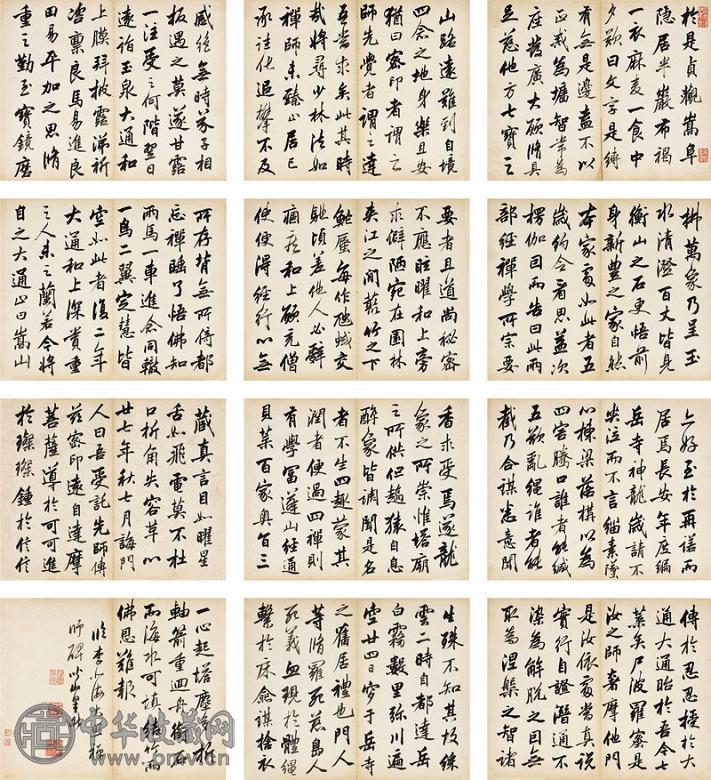 於是貞觀嵩阜
隱居半巖布褐
一衣麻麦一食中
夕歎曰文字是縛
有無是邊盍不以
正戒為墻智常為
座發廣大願脩具
足慈他方七寶之
山路遠難到自境
四念之地身樂且安
猶曰密印者謂之
師先覺者謂之達
吾當求矣此其時
哉將尋少林法如
禪師未臻止居已
承往化追攀不及
感絕無時芥子相
投遇之莫遂甘露
一注受之何階翌日
遠詣玉泉大通和
上膜拜披露涕祈
咨稟良馬易進良
田易平加之思脩
重之勤至寶鏡磨
拂萬象乃呈玉
水清澄百丈皆見
衡山之石更悟前
身新豐之家自然
本家夏如此者五
歲約令看思益次
楞伽因而告曰此兩
部經禪學所宗要
要者且道尚秘密
不應眩曜和上旁
求僻陋宛在園林
夹江之間藂竹之下
虵蠆每作虺蜮交
馳頃差他人必辭
痼疾和上顧充僧
使便得經行心無
所存背無所得都
忘禪睡了悟佛知
兩馬一車進念同轍
一鳥二翼定慧皆
空如此者復二年
大通和上深賞重
之人未之蘭若令將
自之大通曰嵩山
亦好至於再諾而
居焉長安年度編
岳寺神龍歲請不
泣而不言緇素
心棟梁落構以為
四害騰口誰者能緘
五欲亂繩誰者能
截乃合謀悉意聞
香求受焉遂龍
象之所崇惟塔廟
之所供但趨猿自息
醉象皆調聞是名
者不生四趣蒙其
潤者便過四禪則
有學富蓬山經通
貝葉百家奧旨三
藏真言目如曜星
舌如飛電莫不杜
口折角失容革心
廿七年秋七月誨門
人曰吾受託先師傳
茲密印遠自達摩
菩薩導於可可進
於璨璨鍾於信信
傳於忍忍授於大
通大通貽於吾今七
葉矣尸波羅蜜是
汝之師奢摩他門
是汝依處當真說
實行自證潛通不
染為解脫之因無
取為涅槃之智諸
生殊不知其故殊
雲二時自都達岳
白霧數里弥川遍
空廿四日窆于岳寺
之舊居禮也門人
等脩羅死者島人
死義血現於體繩
繫於床僉謀捨衣
一心起塔摩
軸箭重迴舟衛石
而海水可填結竹而
佛恩難報
臨李北海 禪
師碑
中华收藏网
www.pmrw.cn